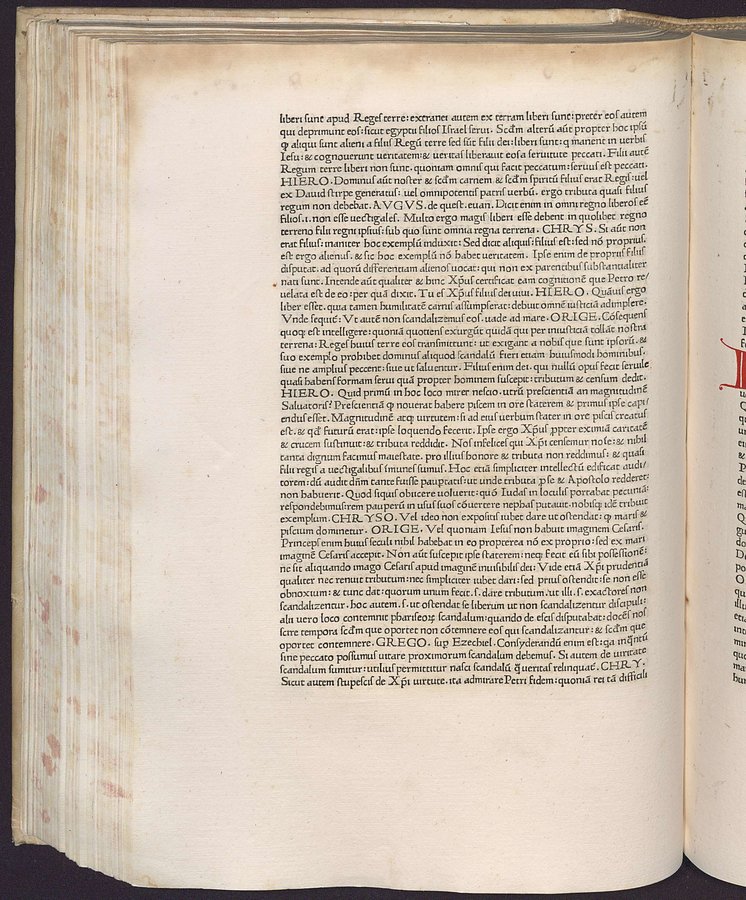 liberi sunt apud Reges terre: extranei autem ex terram liberi sunt: preter eos autem
qui deprimunt eos: sicut egyptii filios Israel serui. Scd̄m alterū aūt propter hoc ipsū
ꝙ aliqui sunt alieni a filiis Regū terre sed sūt filii dei: liberi sunt: q manent in verbis
Iesu: & cognouerunt veritatem: & veritas liberauit eos a seruitute peccati. Filii autē
Regum terre liberi non sunt. quoniam omnis qui facit peccatum: seruus est peccati.
HIERO. Dominus aūt noster & scd̄m carnem & scd̄m spiritū filius erat Regis: uel
ex Dauid stirpe generatus: uel omnipotentis patris verbū. ergo tributa quasi filius
regum non debebat. AVGVS. de quest. euan. Dicit enim in omni regno liberos eē
filios. i. non esse uectigales. Multo ergo magis liberi esse debent in quolibet regno
terreno filii regni ipsius: sub quo sunt omnia regna terrena. CHRYS. Si aūt non
erat filius: inaniter hoc exemplū induxit: Sed dicit aliquis: filius est: sed nō proprius.
est ergo alienus. & sic hoc exemplū nō habet veritatem. Ipse enim de propriis filiis
disputat. ad quorū differentiam alienos uocat: qui non ex parentibus substantialiter
nati sunt. Intende aūt qualiter & hinc Xp̄us certificat eam cognitionē que Petro re/
uelata est de eo: per quā dixit. Tu es Xp̄us filius dei uiui. HIERO. Quāuis ergo
liber esset. quia tamen humilitatē carnis assūmpserat: debuit omnē iusticiā adimplere.
Vnde sequit̄: Vt autē non scandalizemus eos. uade ad mare. ORIGE. Cōsequens
quoqꝫ est intelligere: quoniā quotiens exurgūt quidā qui per iniusticiā tollāt nostra
terrena: Reges huius terre eos transmittunt: ut exigant a nobis que sunt ipsorū. &
suo exemplo prohibet dominus aliquod scandalū fieri etiam huiusmodi hominibus.
siue ne amplius peccent: siue ut saluentur. Filius enim dei. qui nullū opus fecit seruile
quasi habens formam serui quā propter hominem suscepit: tributum & censum dedit.
HIERO. Quid primū in hoc loco mirer nescio. utrū prescientiā an magnitudinē
Saluatoris? Prescientiā ꝙ nouerat habere piscem in ore staterem & primus ipse capi/
endus esset. Magnitudinē atqꝫ uirtutem: si ad eius uerbum stater in ore piscis creatus
est. & qd̄ futurū erat: ipse loquendo fecerit. Ipse ergo Xp̄us ꝓpter eximiā caritatē
& crucem sustinuit: & tributa reddidit. Nos infelices qui Xp̄i censemur noīe: & nihil
tanta dignum facimus maiestate. pro illius honore & tributa non reddimus: & quasi
filii regis a uectigalibus īmunes sumus. Hoc etiā simpliciter intellectū edificat audi/
torem: dū audit dn̄m tante fuisse paupertatis: ut unde tributa ꝓ se & Apostolo redderet:
non habuerit. Quod siquis obiicere uoluerit: quō Iudas in loculis portabat pecuniā:
respondebimus: rem pauperū in usus suos cōuertere nephas putauit. nobisqꝫ idē tribuit
exemplum. CHRYSO. Vel ideo non expositis iubet dare ut ostendat: ꝙ maris &
piscium dominetur. ORIGE. Vel quoniam Iesus non habuit imaginem Cesaris.
Princeps enim huius seculi nihil habebat in eo propterea nō ex proprio: sed ex mari
imaginē Cesaris accepit. Non aūt suscepit ipse staterem: neqꝫ fecit eū sibi possessionē:
ne sit aliquando imago Cesaris apud imaginē inuisibilis dei: Vide etiā Xp̄i prudentiā
qualiter nec renuit tributum: nec simpliciter iubet dari: sed prius ostendit: se non esse
obnoxium: & tunc dat: quorum unum fecit. s. dare tributum. ut illi. s. exactores non
scandalizentur. hoc autem. s. ut ostendat se liberum ut non scandalizentur discipuli:
alii vero loco contemnit phariseorꝫ scandalum: quando de escis disputabat: docēs nos
scire tempora scd̄m que oportet non cōtemnere eos qui scandalizantur: & scd̄m que
oportet contemnere. GREGO. sup̄ Ezechiel. Consyderandū enim est: qa inq̄ntū
sine peccato possumus uitare proximorum scandalum debemus. Si autem de ueritate
scandalum sumitur: utilius permittitur nasci scandalū q̄ veritas relinquat̄. CHRY.
Sicut autem stupescis de Xp̄i uirtute. ita admirare Petri fidem: quoniā rei tā difficili